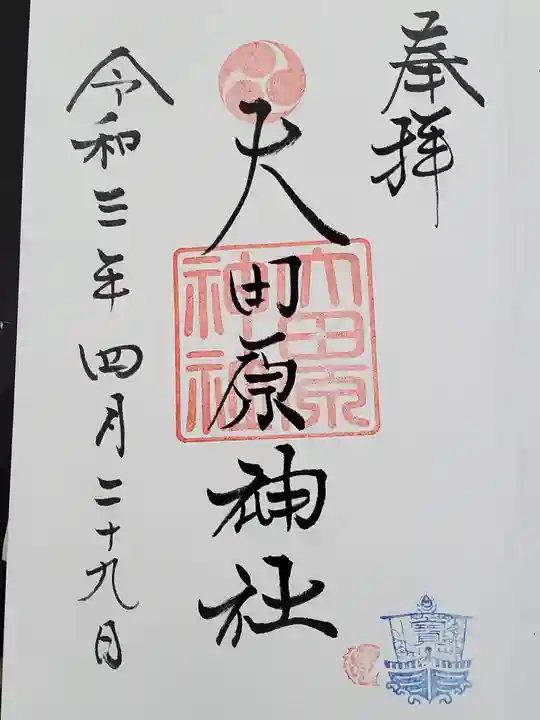 奉拝
大田原神社
大田原
神社
令和三年四月二十九日
寳